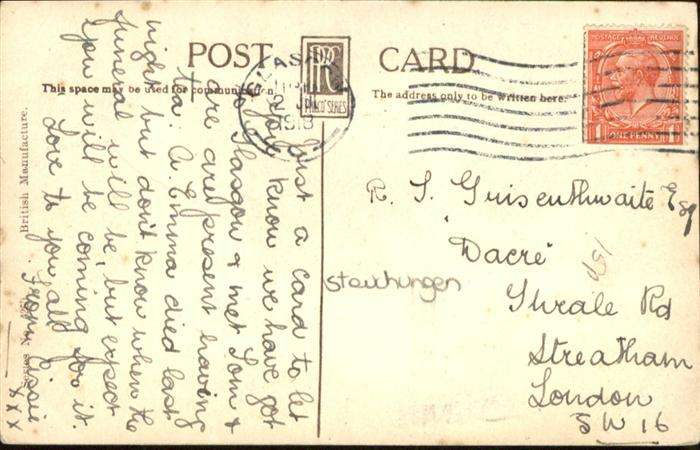 POST CARD
This space may be used for communication.
The address only to be written here.
British Manufacture.
POSTAGE REVENUE
ONE PENNY
1 1
Just a card to let
you know we have got
to Glasgow & met Tom &
are at present having
tea. A. Emma died last
night but don't know when the
funeral will be, but expect
you will be coming for it.
Love to you all
from Lissie
xxx
R. S. Guisenthwaite Esq
"Dacre"
Thrale Rd
Streatham
London
SW 16